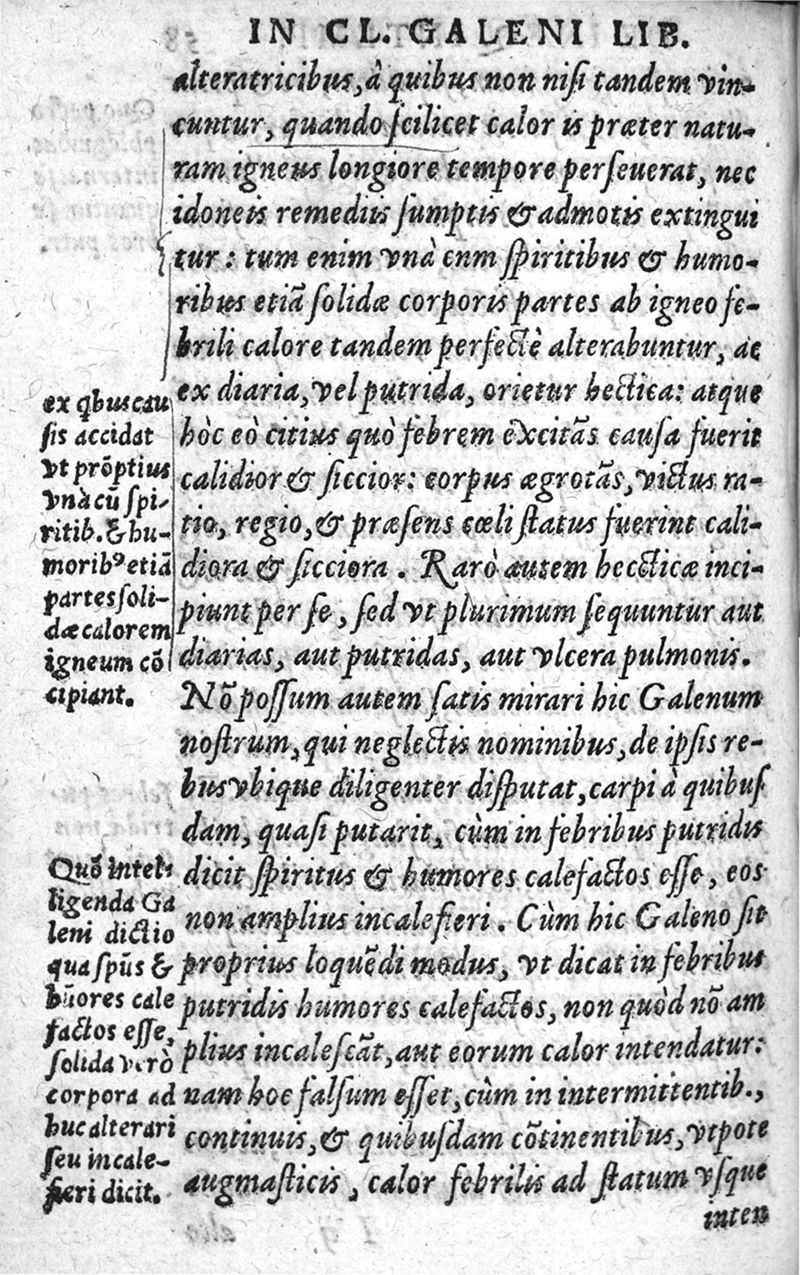 IN CL. GALENI LIB.
alteratricibus, à quibus non nisi tandem vin-
cuntur, quando scilicet calor is præter natu-
ram igneus longiore tempore perseuerat, nec
idoneis remediis sumptis & admotis extingui
tur: tum enim vnà cnm spiritibus & humo-
ribus etiã solidæ corporis partes ab igneo fe-
brili calore tandem perfectè alterabuntur, ac
ex diaria, vel putrida, orietur hectica: atque
hòc eò citius quò febrem excitãs causa fuerit
calidior & siccior: corpus ægrotãs, victus ra-
tio, regio, & præsens cœli status fuerint cali-
diora & sicciora. Rarò autem hecticæ inci-
piunt per se, sed vt plurimum sequuntur aut
diarias, aut putridas, aut vlcera pulmonis.
Nõ possum autem satis mirari hic Galenum
nostrum, qui neglectis nominibus, de ipsis re-
bus vbique diligenter disputat, carpi à quibus
dam, quasi putarit, cùm in febribus putridis
dicit spiritus & humores calefactos esse, eos
non amplius incalefieri. Cùm hic Galeno sit
proprius loquẽdi modus, vt dicat in febribus
putridis humores calefactos, non quòd nõ am
plius incalescãt, aut eorum calor intendatur:
nam hoc falsum esset, cùm in intermittentib.,
continuis, & quibusdam cõtinentibus, vtpote
augmasticis, calor febrilis ad statum vsque
inten
ex qbus cau
sis accidat
vt prõptius
vnà cũ spi-
ritib. & hu-
moribꝰ etiã
partes soli-
dæ calorem
igneum cõ
cipiant.
Quõ intel-
ligenda Ga
leni dictio
qua spũs &
hũores cale
factos esse,
solida verò
corpora ad
huc alterari
seu incale-
fieri dicit.